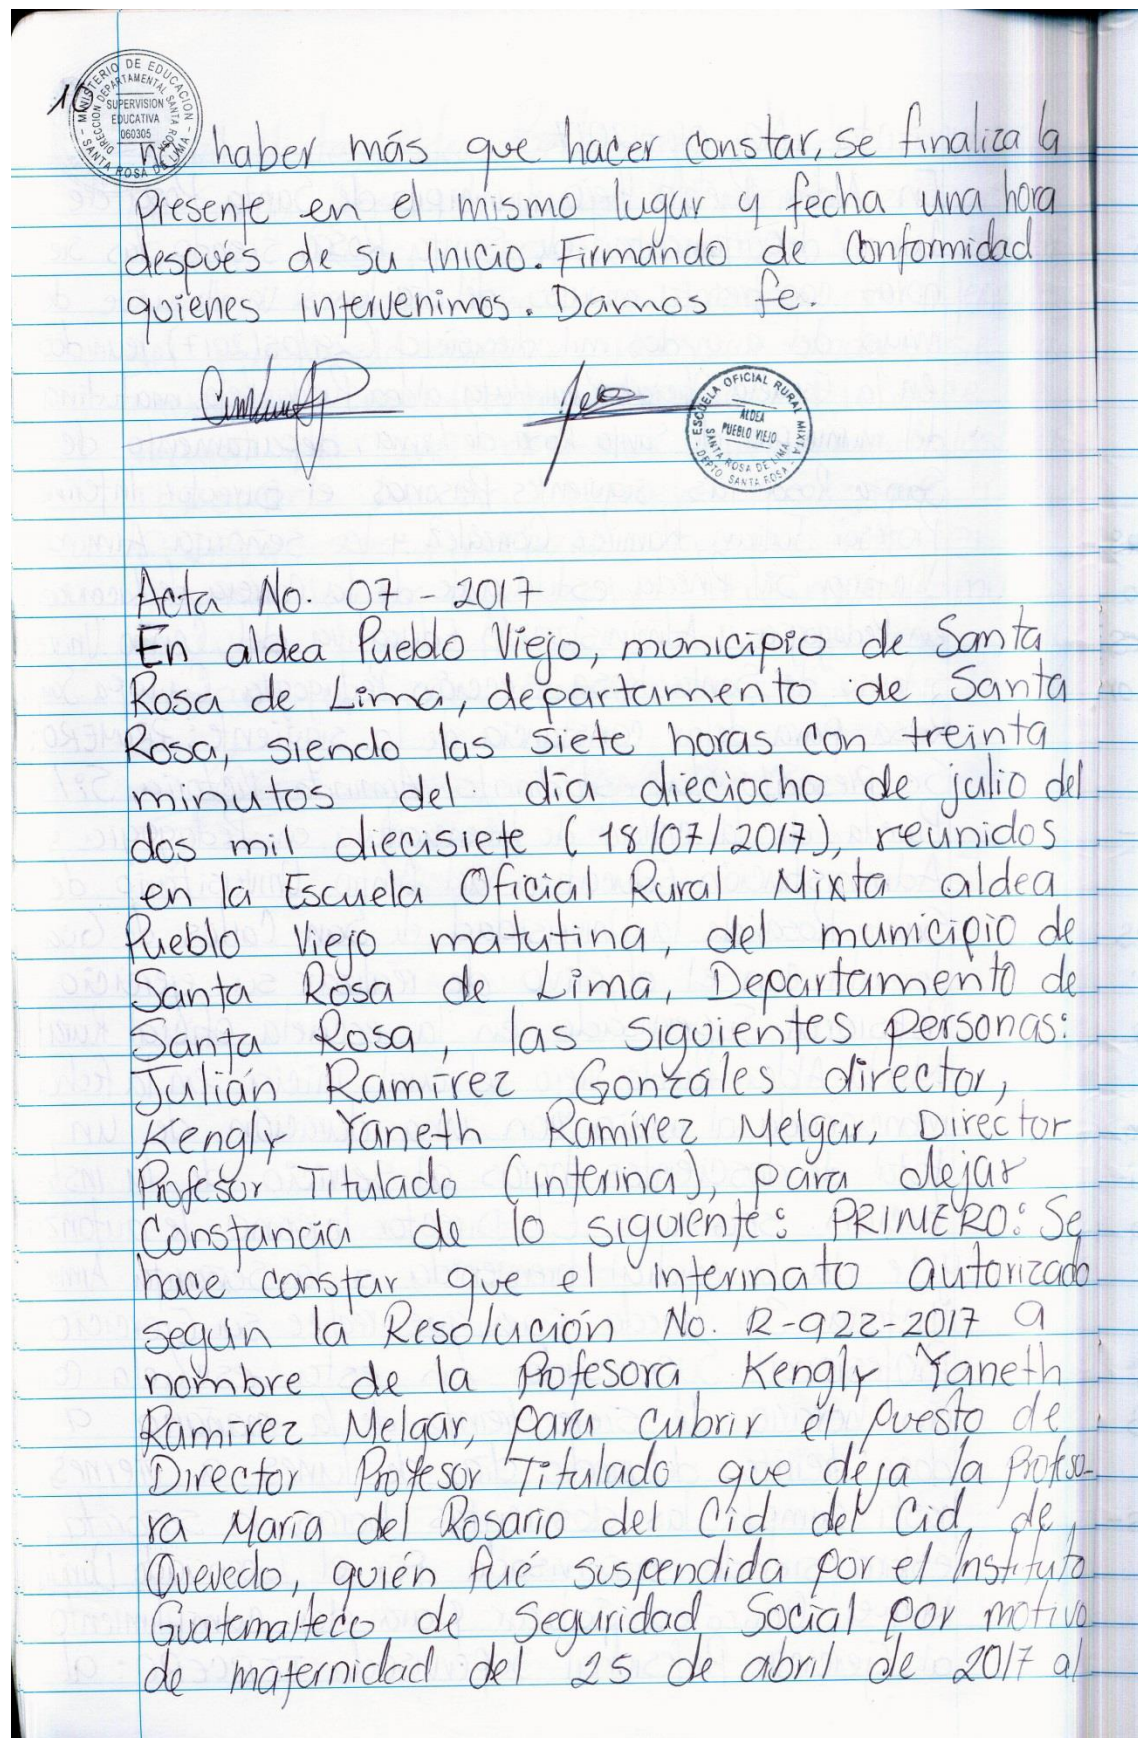 10
MINISTERIO DE EDUCACION
DIRECCION DEPARTAMENTAL SANTA ROSA
SUPERVISION
EDUCATIVA
060305
SANTA ROSA DE LIMA
no haber más que hacer constar, se finaliza la
presente en el mismo lugar y fecha una hora
después de su inicio. Firmando de conformidad
quienes intervenimos. Damos fe.
ESCUELA OFICIAL RURAL MIXTA
ALDEA
PUEBLO VIEJO
SANTA ROSA DE LIMA
DEPTO SANTA ROSA
Acta No. 07-2017
En aldea Pueblo Viejo, municipio de Santa
Rosa de Lima, departamento de Santa
Rosa, siendo las siete horas con treinta
minutos del día dieciocho de julio del
dos mil diecisiete (18/07/2017), reunidos
en la Escuela Oficial Rural Mixta aldea
Pueblo Viejo matutina, del municipio de
Santa Rosa de Lima, Departamento de
Santa Rosa, las siguientes personas:
Julián Ramírez Gonzáles director,
Kengly Yaneth Ramírez Melgar, Director
Profesor Titulado (interina), para dejar
Constancia de lo siguiente: PRIMERO: Se
hace constar que el interinato autorizado
según la Resolución No. R-922-2017 a
nombre de la Profesora Kengly Yaneth
Ramírez Melgar, para cubrir el puesto de
Director Profesor Titulado que deja la Profeso-
ra María del Rosario del Cid del Cid de
Quevedo, quién fué suspendida por el Instituto
Guatemalteco de Seguridad Social por motivo
de maternidad del 25 de abril de 2017 al